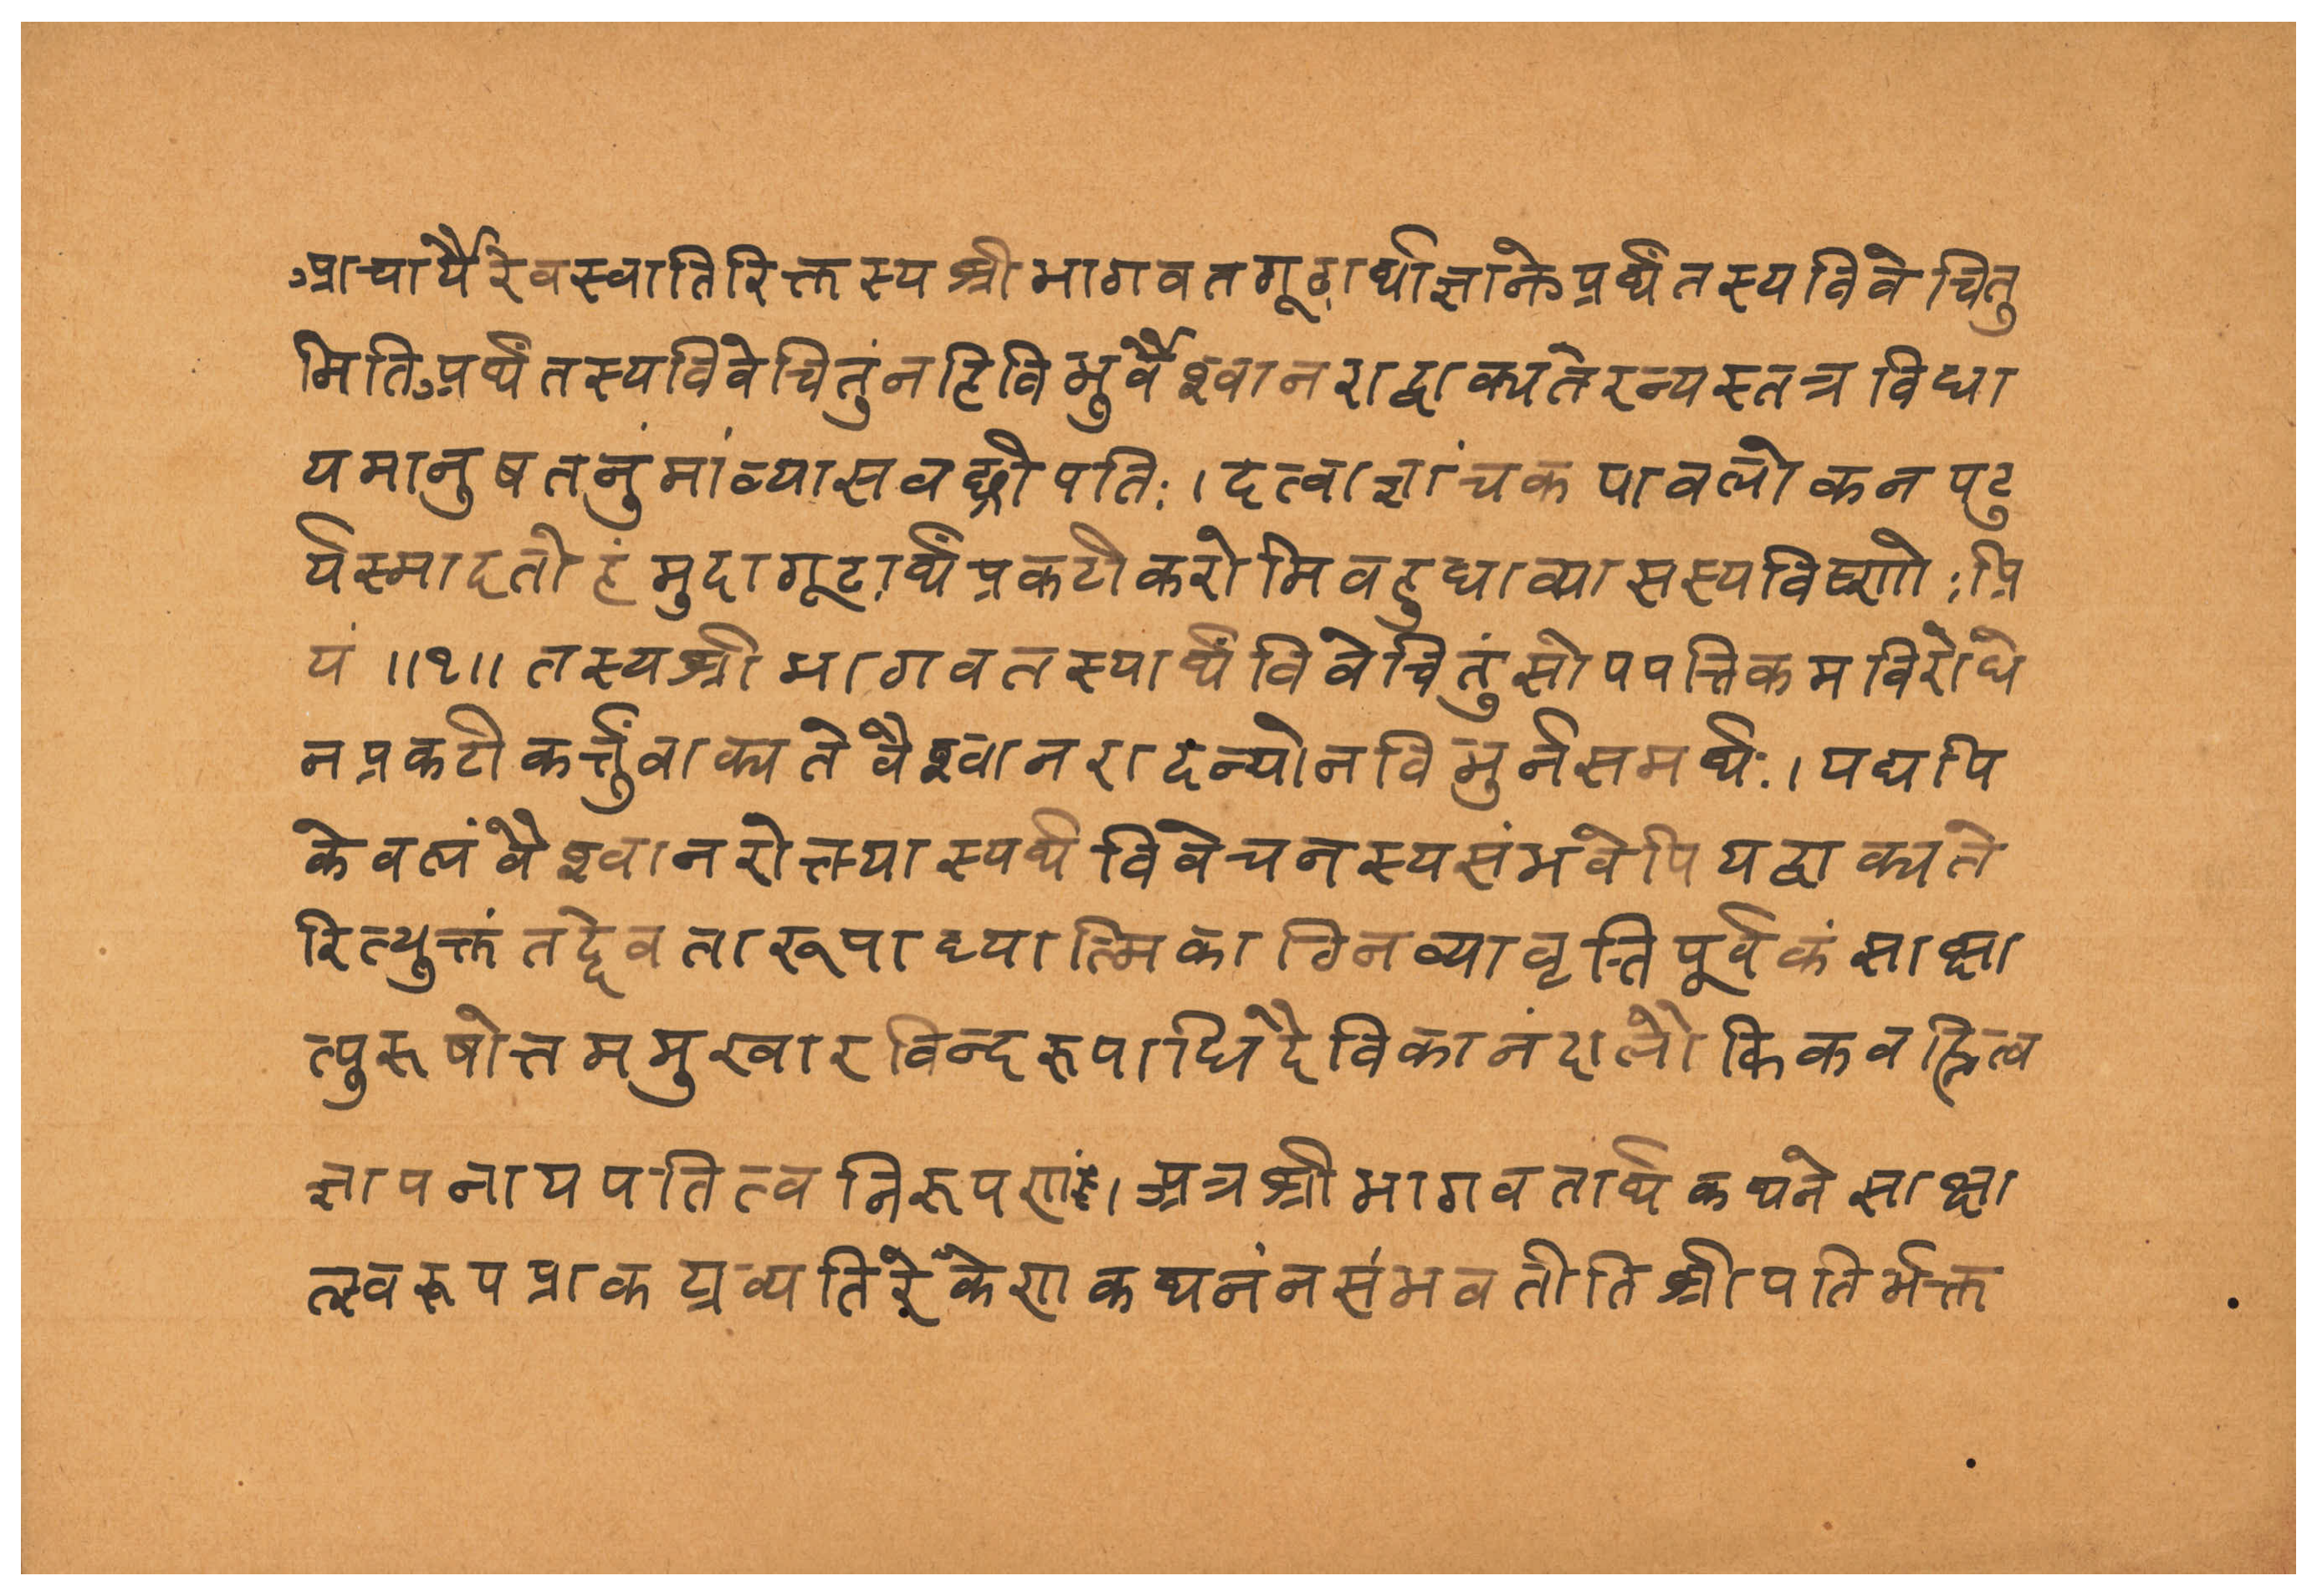 आचार्यैरेवस्वातिरिक्तस्य श्रीभागवतगूढार्थाज्ञानेअर्थंतस्यविवेचितु
मिति अर्थंतस्यविवेचितुंनहिविभुर्वैश्वानराद्वाक्पतेरन्यस्तत्रविधा
यमानुषतनुंमांव्यासवच्छ्रीपतिः । दत्वाज्ञांचकपावलोकनपटु
र्यस्मादतोहंमुदागूढार्थंप्रकटीकरोमिवहुधाव्यासस्यविष्णोःप्रि
यं ॥१॥ तस्यश्रीभागवतस्यार्थंविवेचितुंसोपपत्तिकमविरोधे
नप्रकटीकर्त्तुंवाक्पतेर्वैश्वानरादन्योनविभुर्नसमर्थः । यद्यपि
केवलंवैश्वानरोक्त्याप्यर्थविवेचनस्यसंभवेपियद्वाक्पते
रित्युक्तंतद्देवतारूपाध्यात्मिकाग्निव्यावृत्तिपूर्वकंसाक्षा
त्पुरुषोत्तममुखारविन्दरूपाधिदैविकानंदालौकिकवह्नित्व
ज्ञापनायपतित्वनिरूपणं । अत्रश्रीभागवतार्थकथनेसाक्षा
त्स्वरूपप्राकट्यव्यतिरेकेणकथनंनसंभवतीतिश्रीपतिर्भक्त